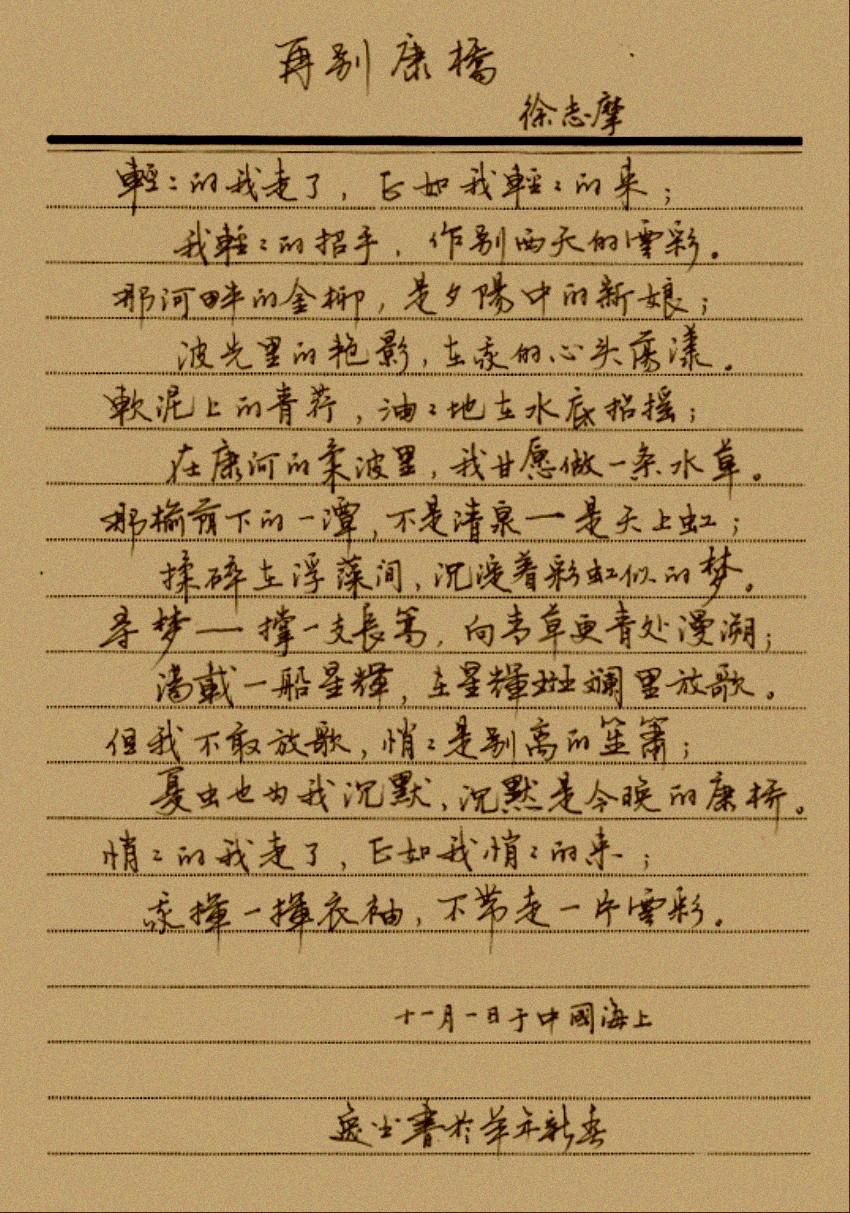 再别康橋
徐志摩
輕〻的我走了，正如我輕〻的来；
我輕〻的招手，作别西天的雲彩。
那河畔的金柳，是夕陽中的新娘；
波光里的艳影，在我的心头荡漾。
軟泥上的青荇，油〻地在水底招摇；
在康河的柔波里，我甘愿做一条水草。
那榆荫下的一潭，不是清泉一是天上虹；
揉碎在浮藻间，沉淀着彩虹似的梦。
寻梦一撑一支長篙，向青草更青处漫溯；
满載一船星輝，在星輝斑斓里放歌。
但我不敢放歌，悄〻是别离的笙箫；
夏虫也为我沉默，沉默是今晚的康桥。
悄〻的我走了，正如我悄〻的来；
我揮一揮衣袖，不带走一片雲彩。
十一月一日于中國海上
書於羊年新春